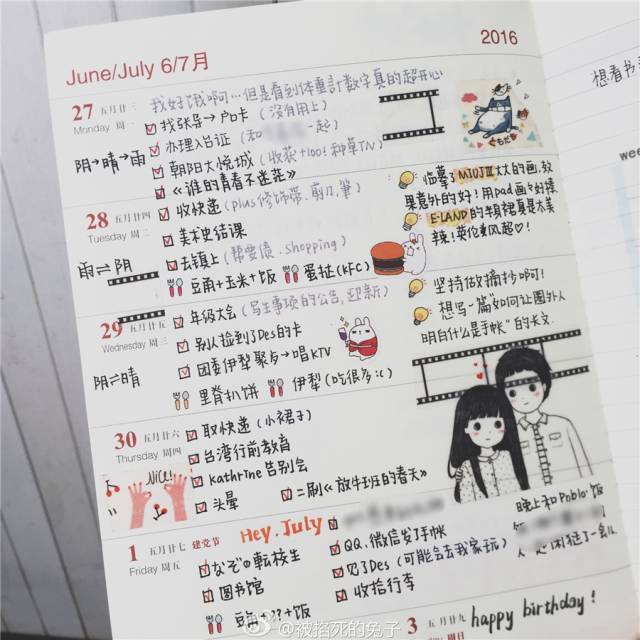 June/July 6/7月
2016
想看书
27 五月廿三
Monday 周一
我好饿啊…但是看到体重計数字真的超开心
找张导→Pb卡 (没有用上)
办理入台证 (和 一起)
朝阳大悦城 (收获+100! 种草TN)
《谁的青春不迷茫》
阴→晴→雨
28 五月廿四
Tuesday 周二
收快递 (plus修饰带.剪刀.筆)
美术史结课
去镇上 (帮要债.shopping)
豆角+玉米+饭 蛋挞(KFC)
雨⇌阴
临摹了MIUJII太太的画,效
果意外的好!用pad画女好操
E·LAND的半身裙真是太美
辣!英伦菓风起♡!
29 五月廿五
Wednesday 周三
年级大会 (写生事项的公告,迎新)
别人捡到了Des的卡
团委伊犁聚歺→唱KTV
里脊扒饼 伊犁(吃很多:c)
阴⇌晴
坚持做摘抄啊!
想写一篇"如何让圈外人
明白什么是手帐"的长文.
30 五月廿六
Thursday 周四
取快递 (小裙子)
台湾行前教育
Kathrine 告别会
头晕
二刷《放牛班的春天》
Nice!
1 五月廿七 建党节
Friday 周五
Hey, July
なぞの転校生
图书馆
豆角+??+饭
QQ.微信发了手帐
见了Des (可能会去我家玩)
收拾行李
晚上和Poblo.饭
人一起闲逛了一会儿
3 五月廿九
happy birthday!
@被掐死的兔子